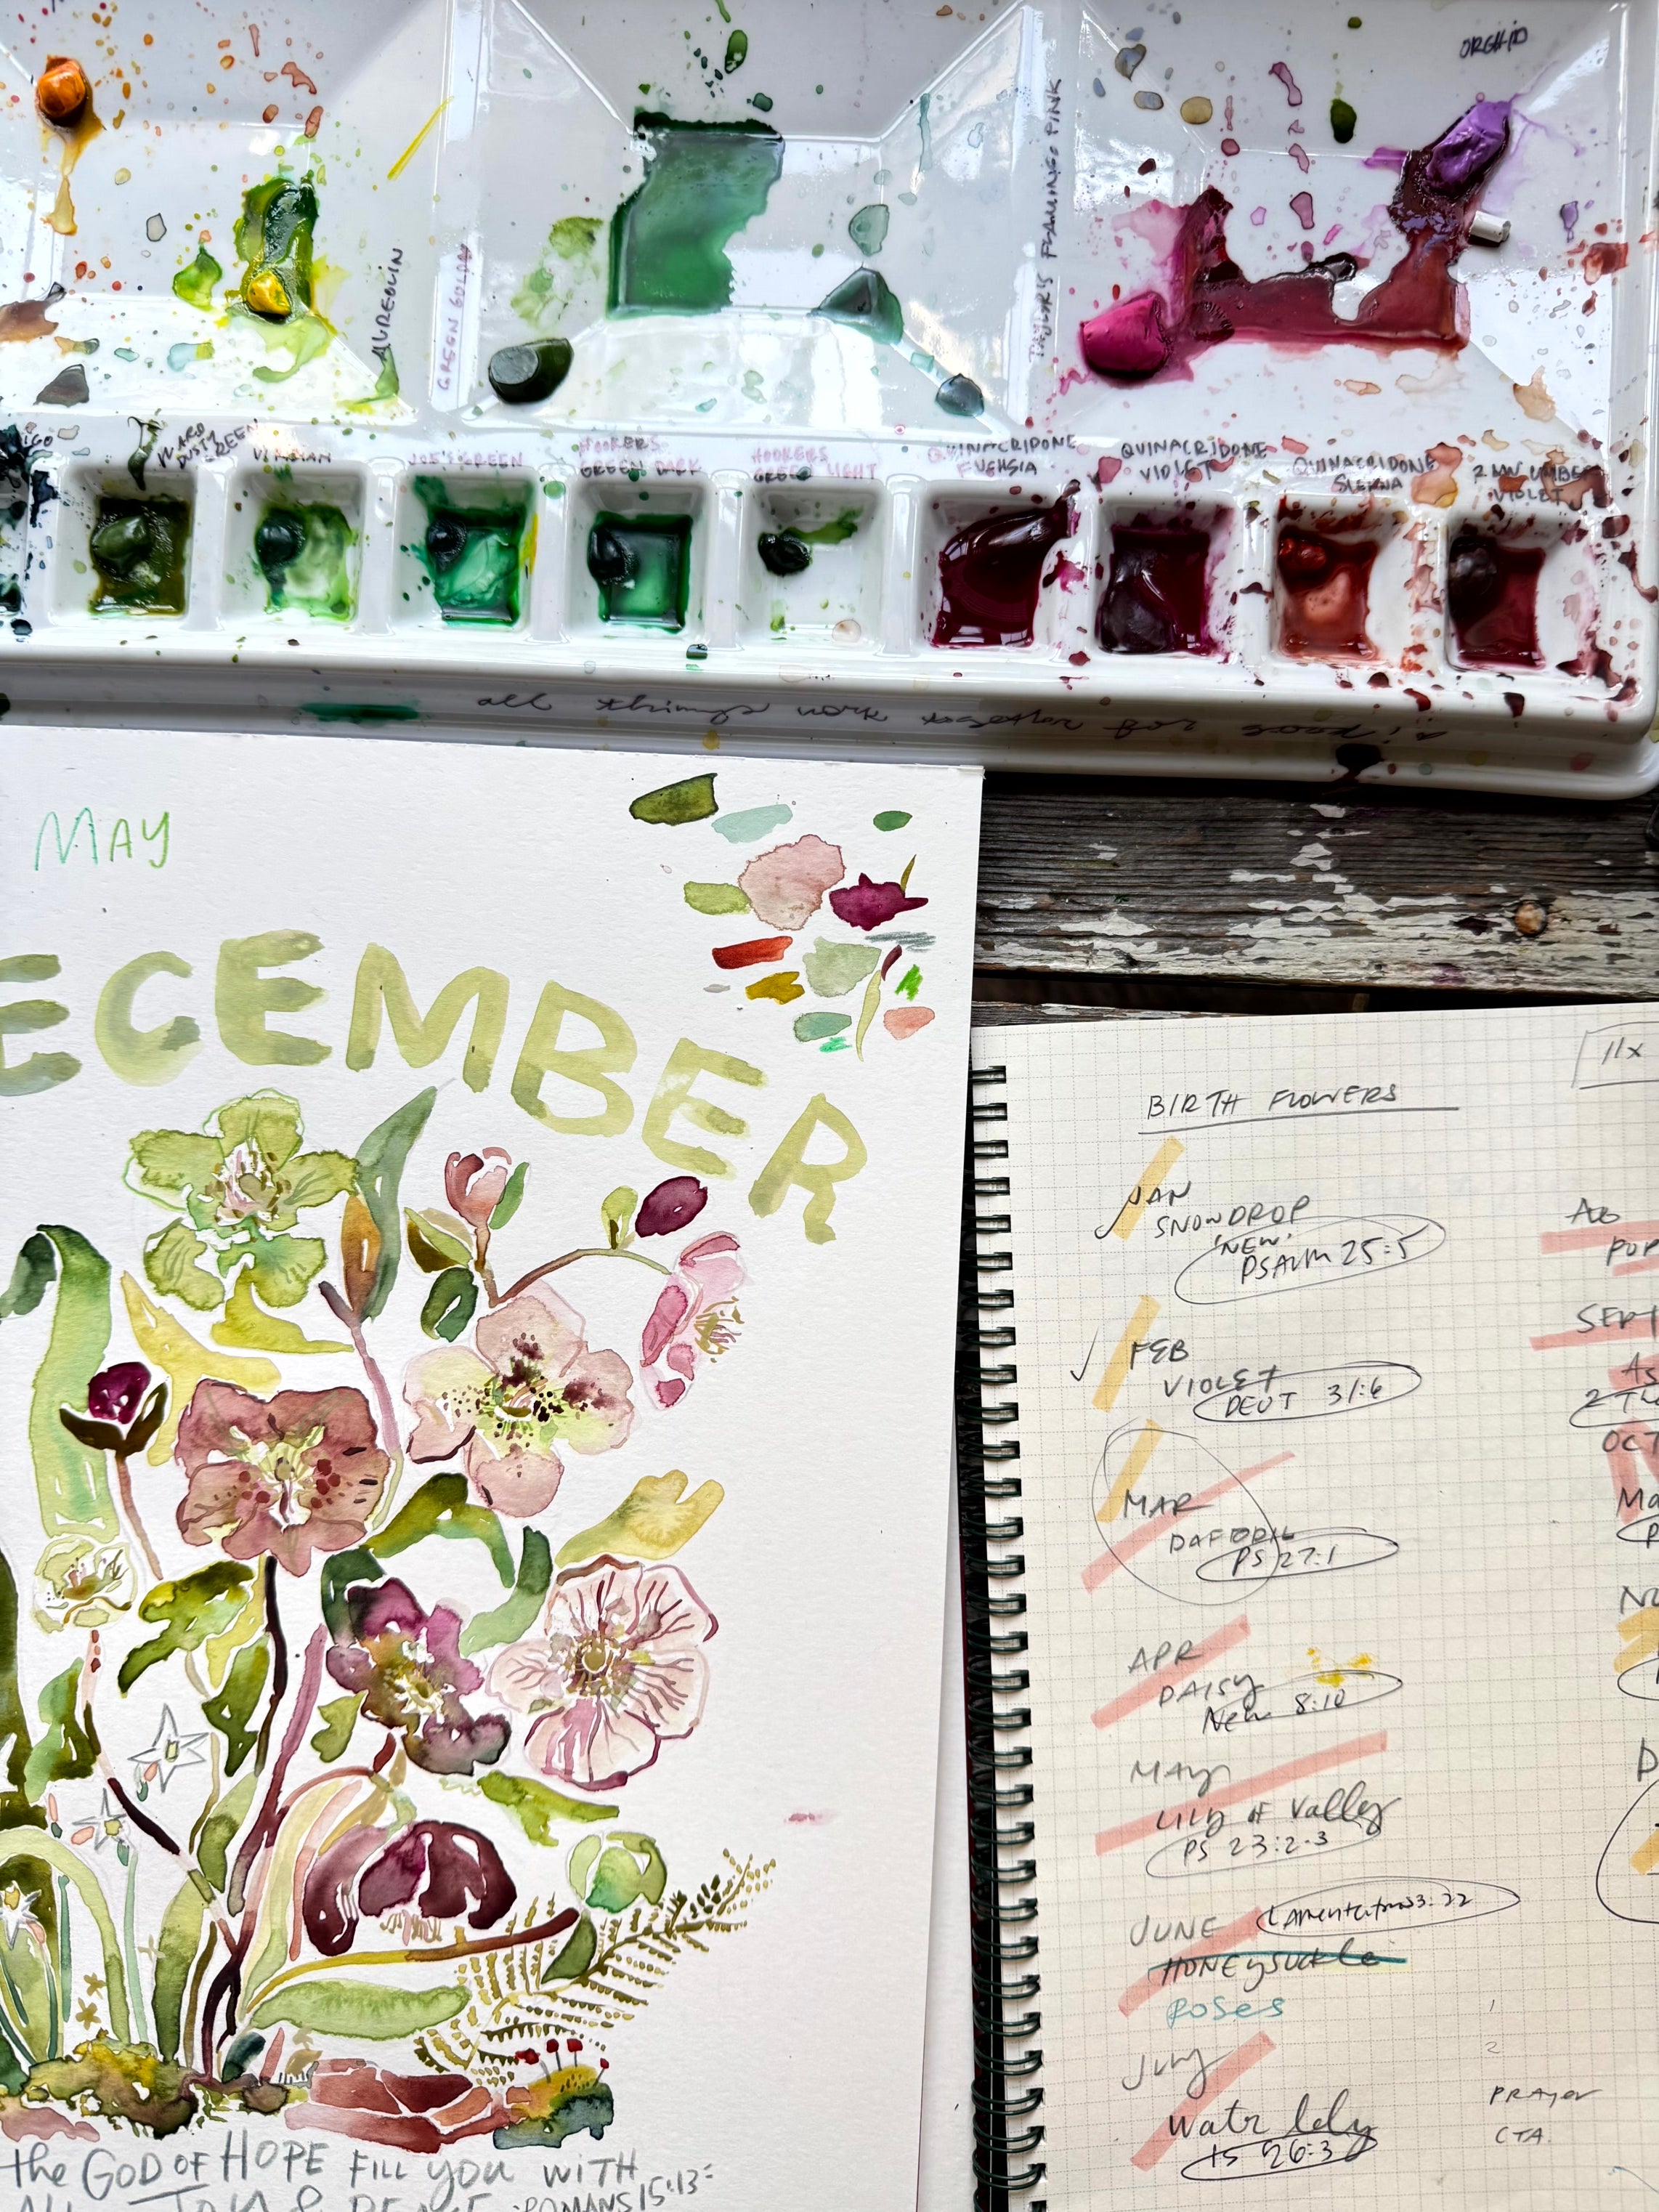 ORCHID
AUREOLIN
GREEN GOLD
FLAMINGO PINK
DUSTY GREEN
JOE'S GREEN
HOOKERS
GREEN DARK
HOOKERS
GREEN LIGHT
QUINACRIDONE
FUCHSIA
QUINACRIDONE
VIOLET
QUINACRIDONE
SIENNA
VIOLET
all things work together for good
MAY
ECEMBER
the GOD OF HOPE FILL you WITH
JOY & PEACE ROMANS 15:13
BIRTH FLOWERS
JAN
SNOWDROP
'NEW'
PSALM 25:5
FEB
VIOLET
DEUT 31:6
MAR
DAFFODIL
PS 27:1
APR
DAISY
8:10
MAY
LILY OF Valley
PS 23:2-3
JUNE
Lamentations 3:22
HONEYSUCKLE
ROSES
July
Watr lily
IS 26:3
11x
SEPT
AS
OCT
1
2
PRAYER
CTA.